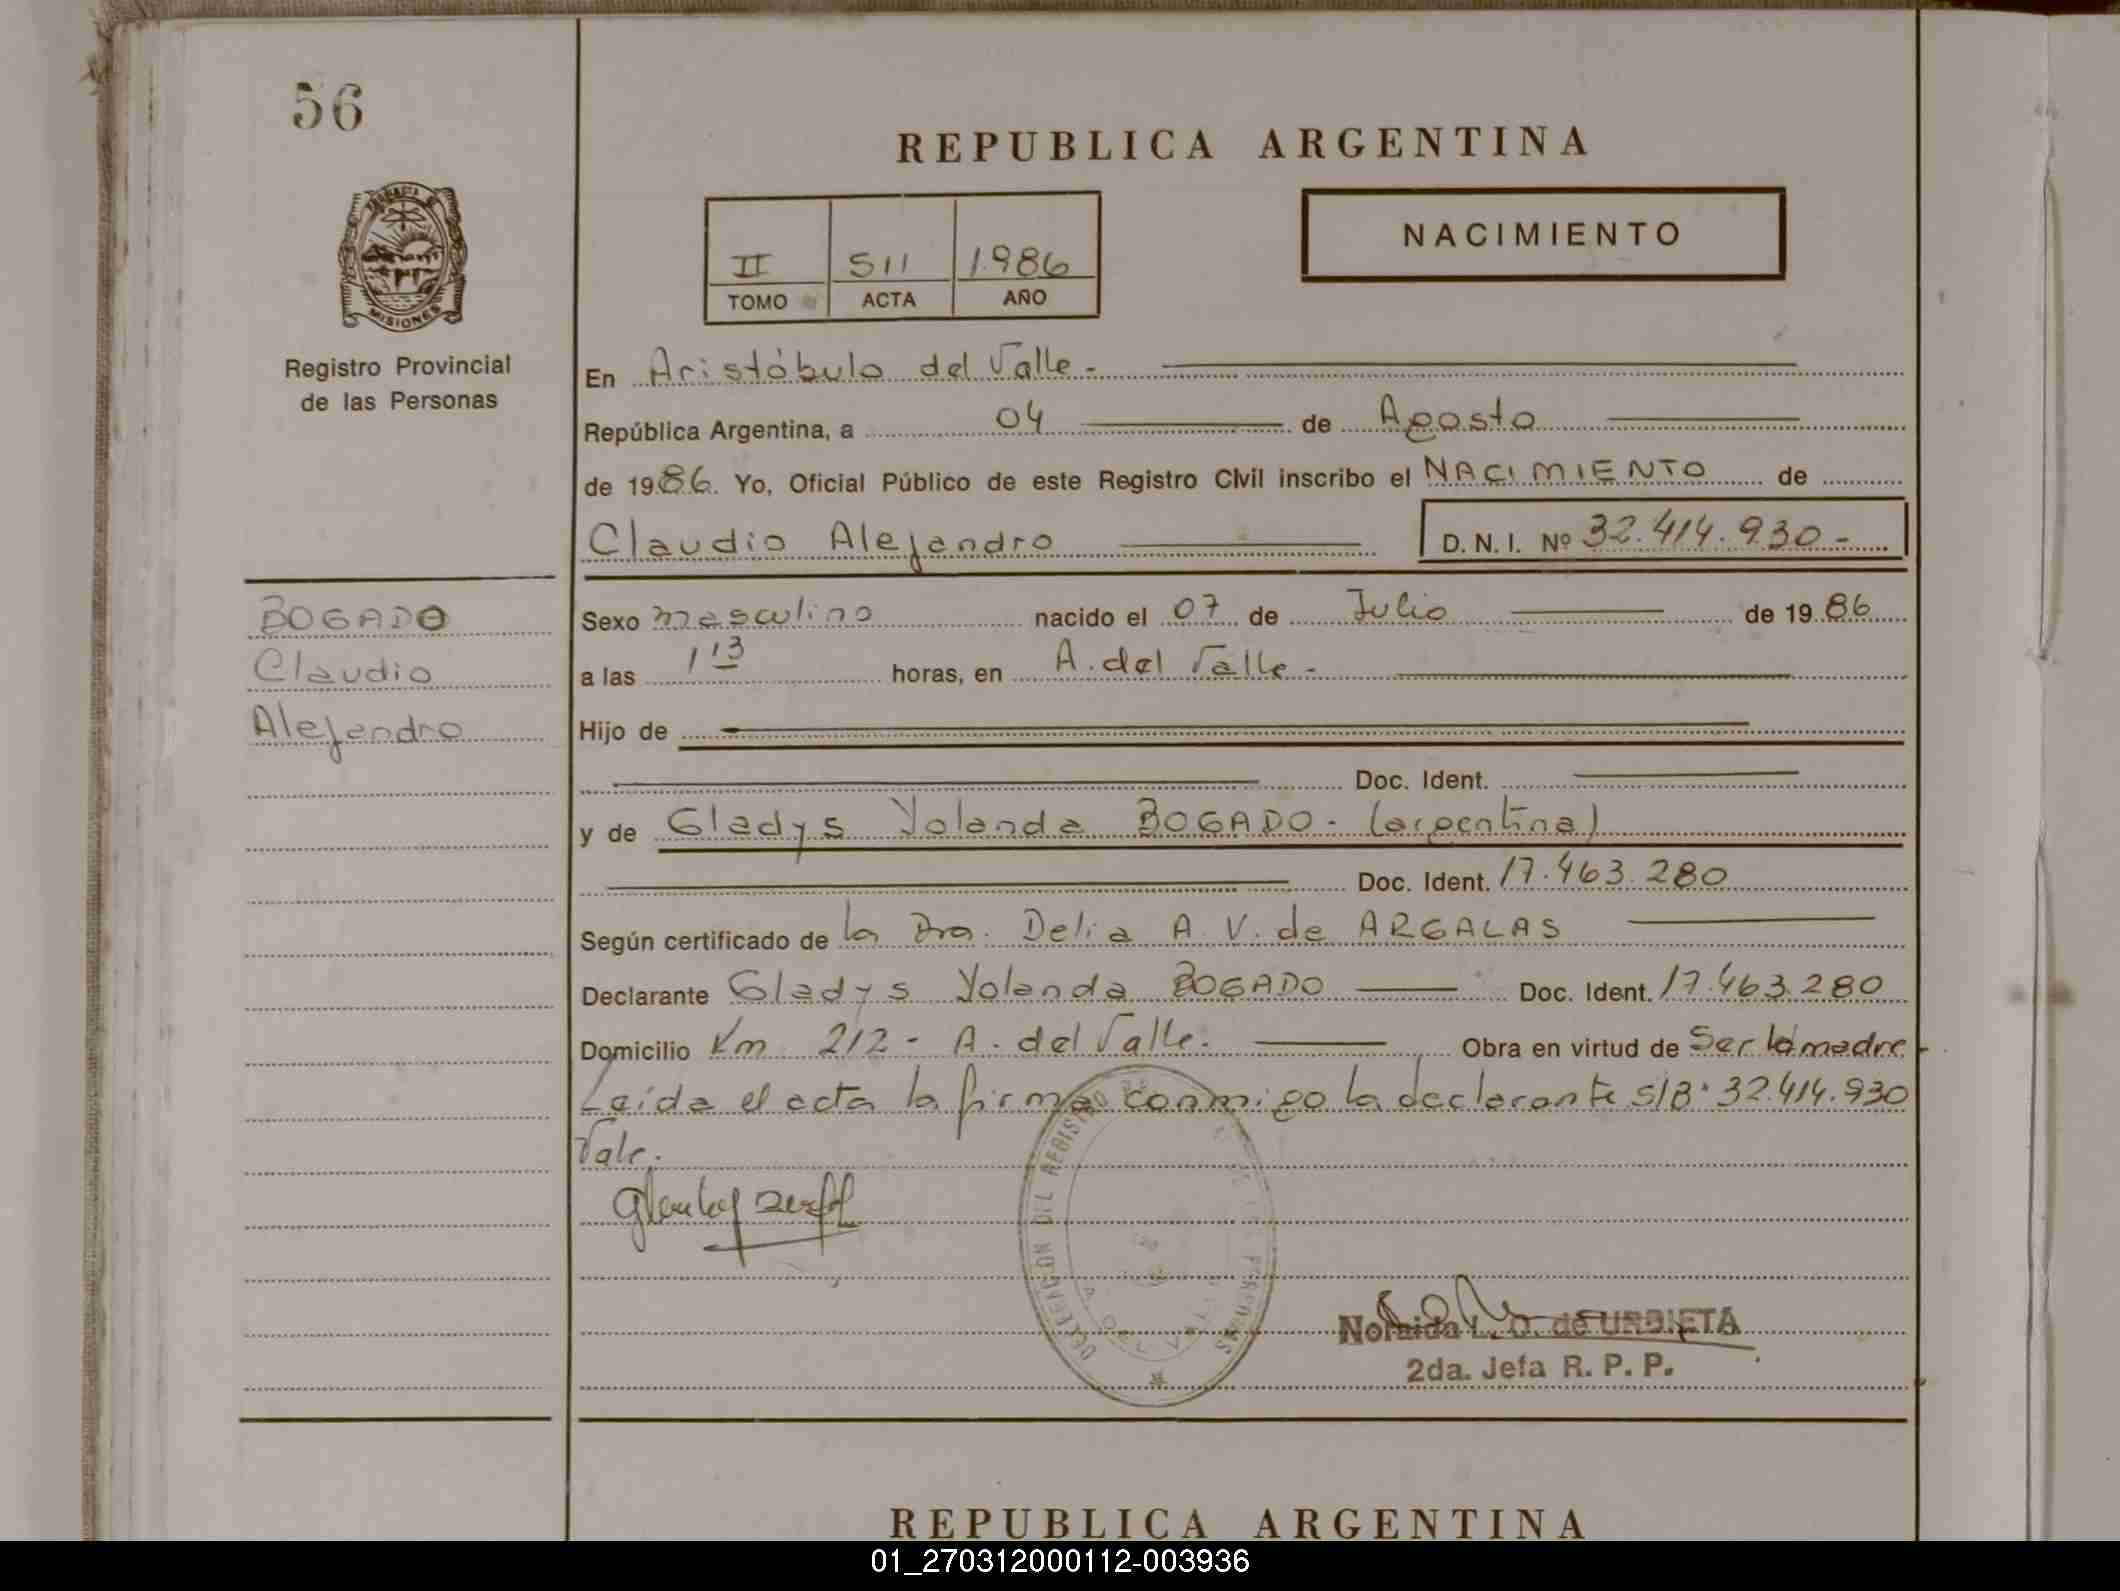 56
REPUBLICA ARGENTINA
II 511 1.986
TOMO ACTA AÑO
NACIMIENTO
MISIONES
Registro Provincial
de las Personas
En Aristóbulo del Valle.-
República Argentina, a 04 de Agosto
de 1986. Yo, Oficial Público de este Registro Civil inscribo el NACIMIENTO de
Claudio Alejandro D. N. I. Nº 32.414.930-
BOGADO
Claudio
Alejandro
Sexo masculino nacido el 07 de Julio de 1986
a las 1 13 horas, en A. del Valle-
Hijo de
Doc. Ident.
y de Gladys Yolanda BOGADO- (argentina)
Doc. Ident. 17.463.280
Según certificado de la Dra. Delia A. V. de ARGALAS
Declarante Gladys Yolanda BOGADO Doc. Ident. 17.463.280
Domicilio Km 212- A. del Valle. Obra en virtud de Ser la madre
Leída el acta la firma conmigo la declarante s/B. 32.414.930
Vale.
DELEGACION DEL REGISTRO
Noraida L. O. de URBIETA
2da. Jefa R. P. P.
REPUBLICA ARGENTINA
01_270312000112-003936